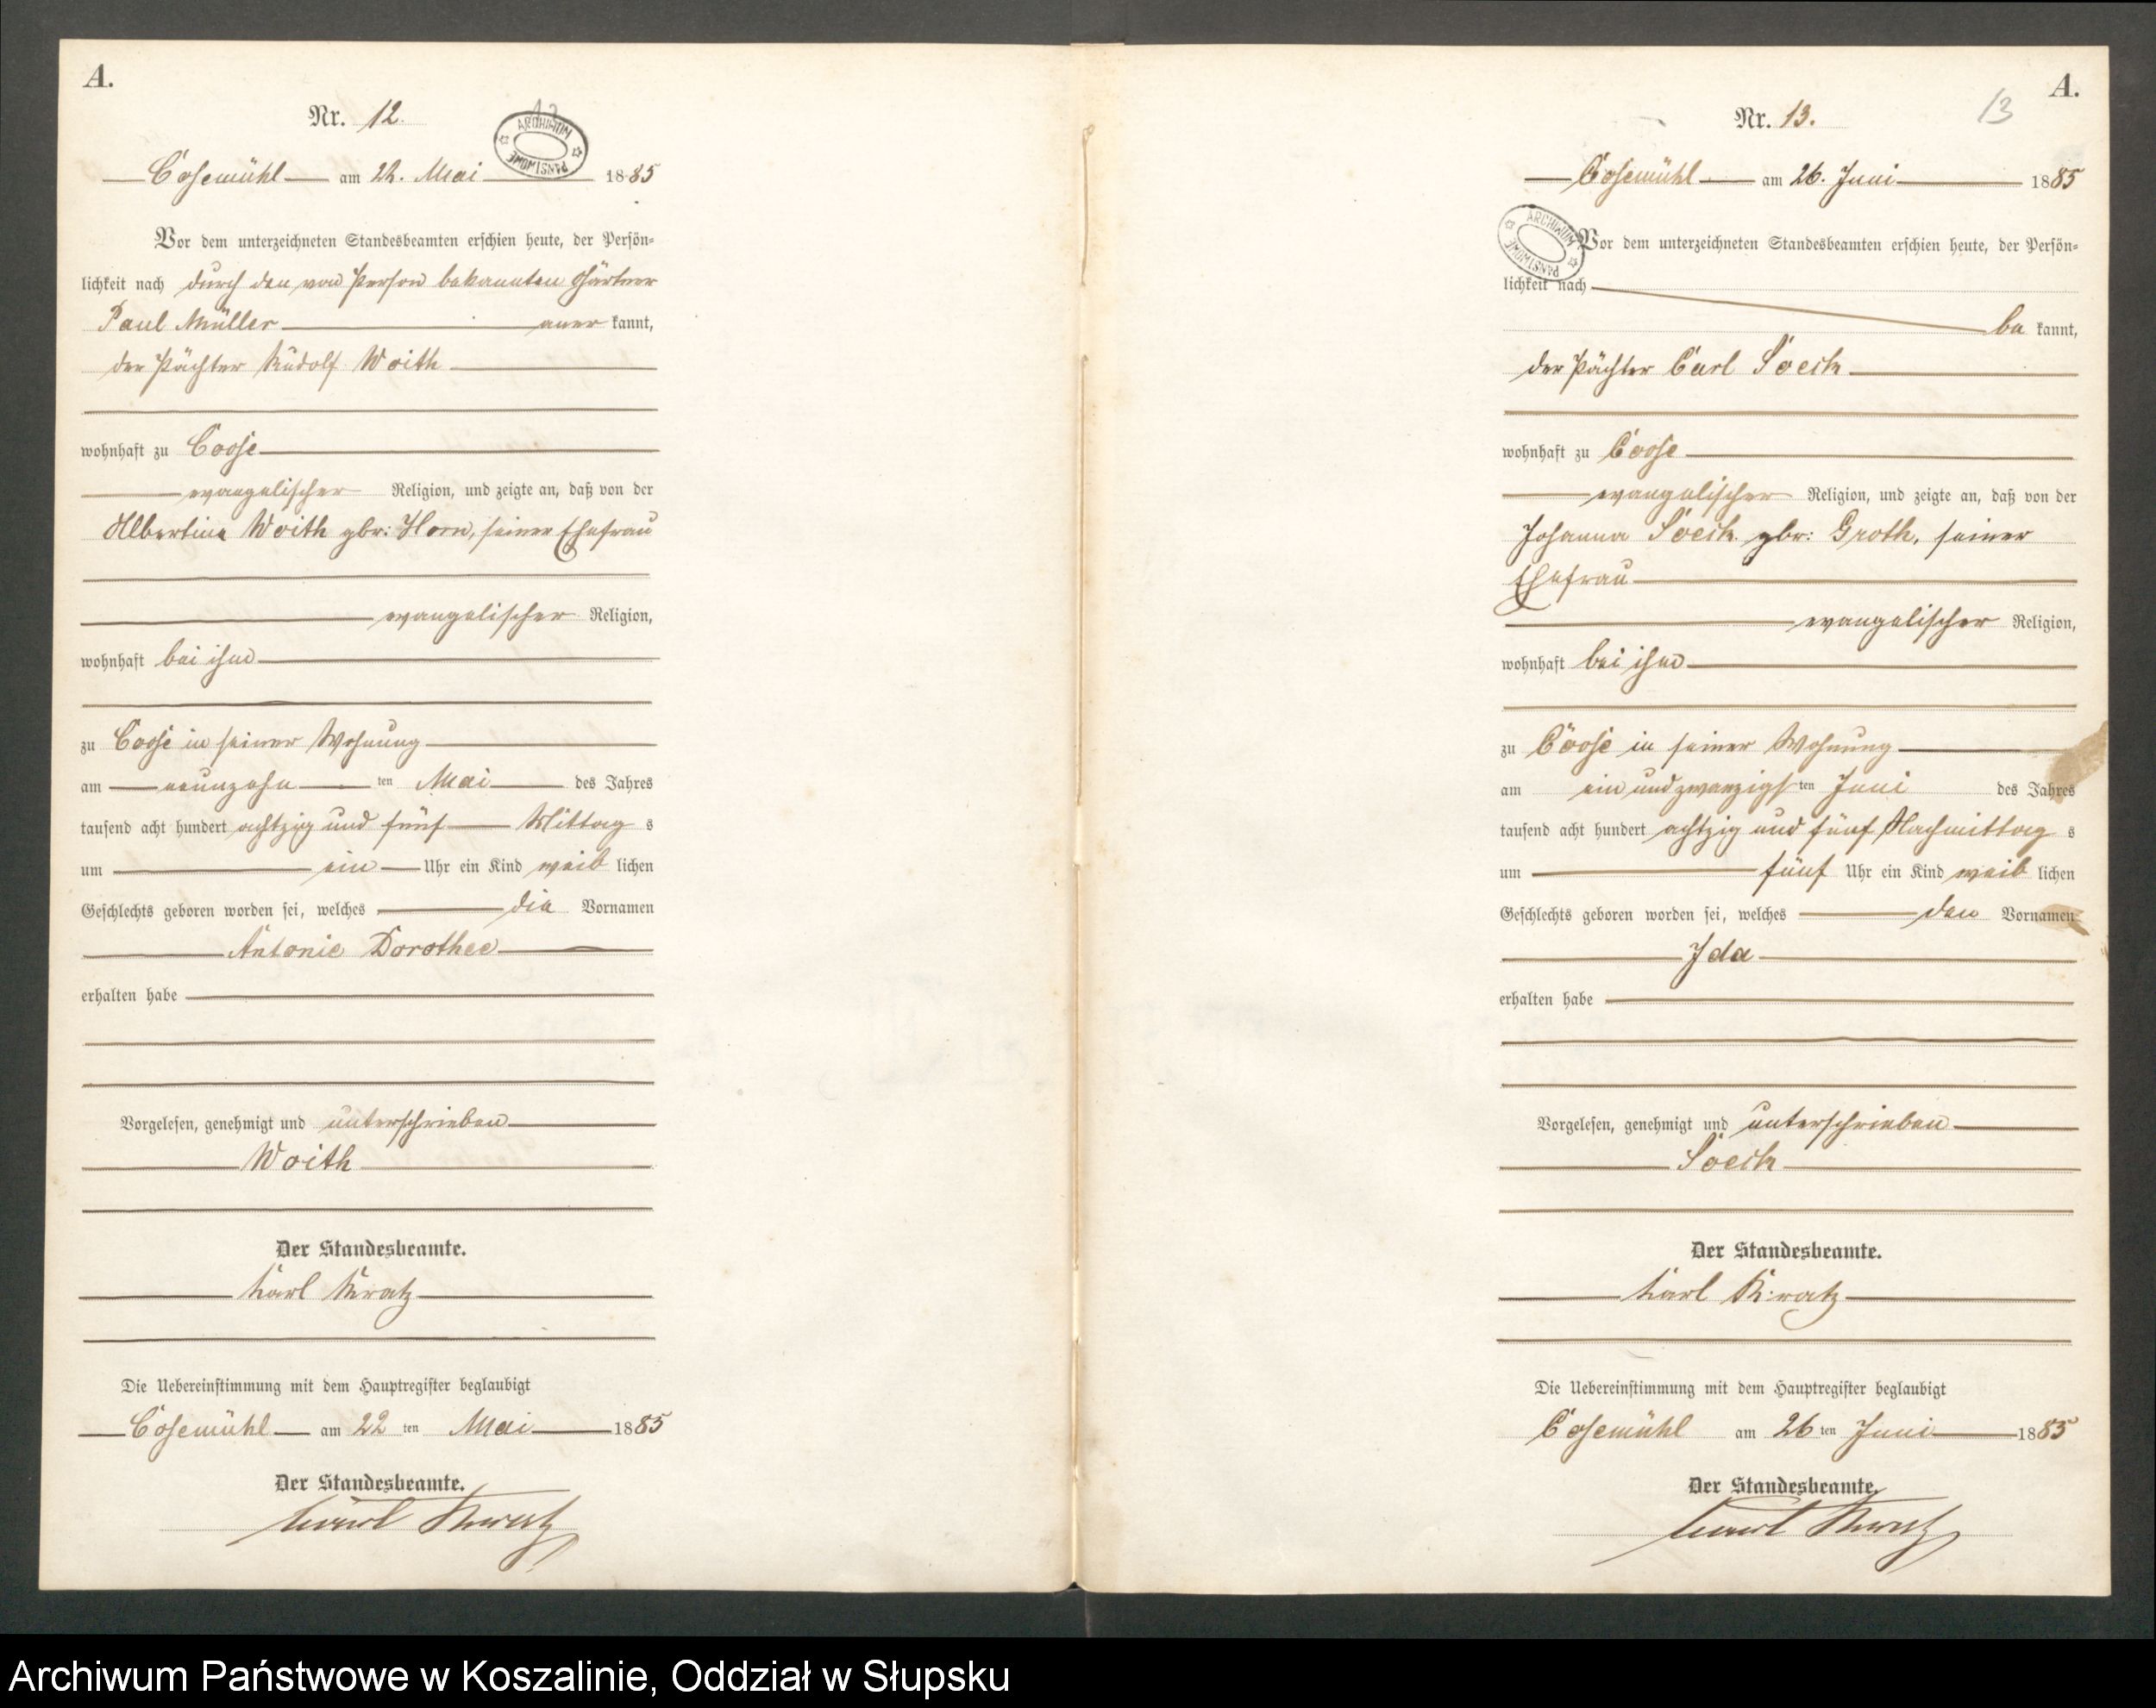 A.
Nr. 12.
12
ARCHIWUM PAŃSTWOWE
Cosemühl am 22. Mai 1885
Vor dem unterzeichneten Standesbeamten erschien heute, der Persön-
lichkeit nach durch den von Person bekannten Gärtner
Paul Müller aner kannt,
der Pächter Rudolf Woith
wohnhaft zu Coose
evangelischer Religion, und zeigte an, daß von der
Albertine Woith gbr: Horn, seiner Ehefrau
evangelischer Religion,
wohnhaft bei ihm
zu Coose in seiner Wohnung
am neunzehn ten Mai des Jahres
tausend acht hundert achtzig und fünf Mittag s
um ein Uhr ein Kind weib lichen
Geschlechts geboren worden sei, welches die Vornamen
Antonie Dorothee
erhalten habe
Vorgelesen, genehmigt und unterschrieben
Woith
Der Standesbeamte.
Karl Kratz
Die Uebereinstimmung mit dem Hauptregister beglaubigt
Cosemühl am 22 ten Mai 1885
Der Standesbeamte.
Karl Kratz
A.
Nr. 13.
13
Cosemühl am 26. Juni 1885
ARCHIWUM PAŃSTWOWE
Vor dem unterzeichneten Standesbeamten erschien heute, der Persön-
lichkeit nach
be kannt,
der Pächter Carl
wohnhaft zu Coose
evangelischer Religion, und zeigte an, daß von der
Johanna gbr: Groth, seiner
Ehefrau
evangelischer Religion,
wohnhaft bei ihm
zu Coose in seiner Wohnung
am ein und zwanzigs ten Juni des Jahres
tausend acht hundert achtzig und fünf Nachmittag s
um fünf Uhr ein Kind weib lichen
Geschlechts geboren worden sei, welches den Vornamen
Ida
erhalten habe
Vorgelesen, genehmigt und unterschrieben
Der Standesbeamte.
Karl Kratz
Die Uebereinstimmung mit dem Hauptregister beglaubigt
Cosemühl am 26 ten Juni 1885
Der Standesbeamte.
Karl Kratz
Archiwum Państwowe w Koszalinie, Oddział w Słupsku